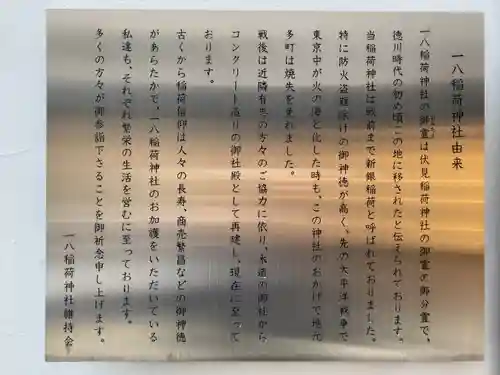 一八稲荷神社由来
一八稲荷神社の御霊は伏見稲荷神社の御霊の御分霊で、
徳川時代の初め頃この地に移されたと伝えられております。
当稲荷神社は戦前まで新銀稲荷と呼ばれておりました。
特に防火盗難除けの御神徳が高く、先の太平洋戦争で
東京中が火の海と化した時も、この神社のおかげで地元
多町は焼失を免れました。
戦後は近隣有志の方々のご協力に依り、木造の御社から
コンクリート造りの御社殿として再建し、現在に至って
おります。
古くから稲荷信仰は人々の長寿、商売繁昌などの御神徳
があらたかで、一八稲荷神社のお加護をいただいている
私達も、それぞれ繁栄の生活を営むに至っております。
多くの方々が御参詣下さることを御祈念申し上げます。
一八稲荷神社維持会